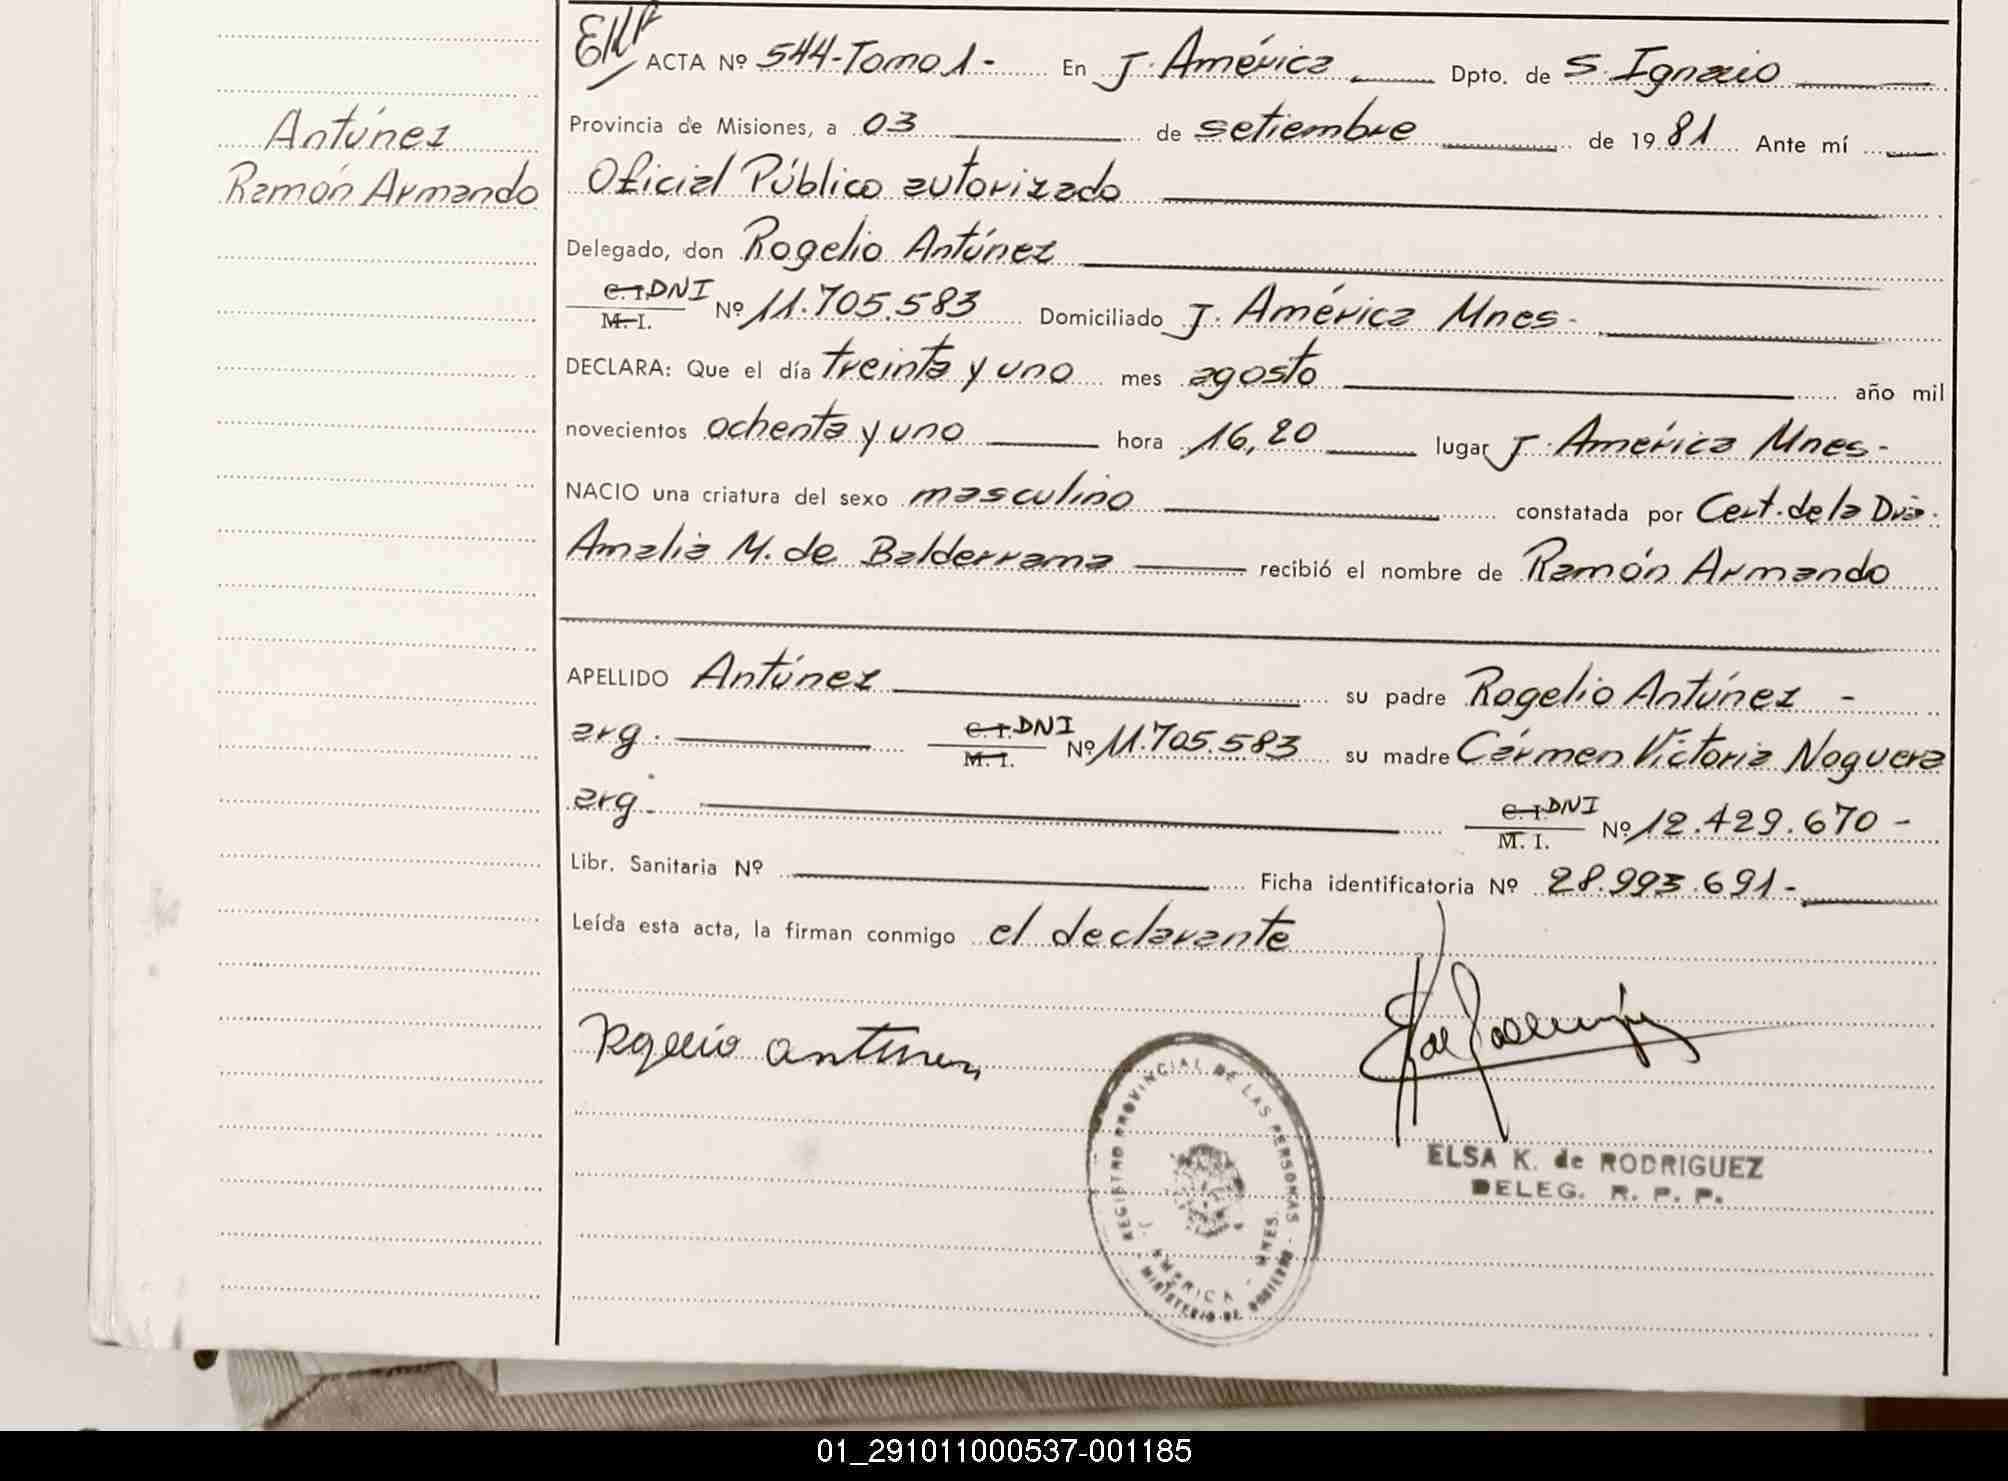 ACTA Nº 544-Tomo 1- En J. América Dpto. de S. Ignacio
Antúnez
Ramón Armando
Provincia de Misiones, a 03 de setiembre de 1981 Ante mí
Oficial Público autorizado
Delegado, don Rogelio Antúnez
C. I. DNI
M. I. Nº 11.705.583 Domiciliado J. América Mnes-
DECLARA: Que el día treinta y uno mes agosto año mil
novecientos ochenta y uno hora 16,20 lugar J. América Mnes-
NACIO una criatura del sexo masculino constatada por Cert. de la Dra.
Amalia M. de Balderrama recibió el nombre de Ramón Armando
APELLIDO Antúnez su padre Rogelio Antúnez -
arg. C. I. DNI
M. I. Nº 11.705.583 su madre Cármen Victoria Noguera
arg. C. I. DNI
M. I. Nº 12.429.670-
Libr. Sanitaria Nº Ficha identificatoria Nº 28.993.691-
Leída esta acta, la firman conmigo el declarante
Rogelio Antunez
REGISTRO PROVINCIAL DE LAS PERSONAS - MINISTERIO DE GOBIERNO
J. AMERICA - MNES.
ELSA K. de RODRIGUEZ
DELEG. R. P. P.
01_291011000537-001185